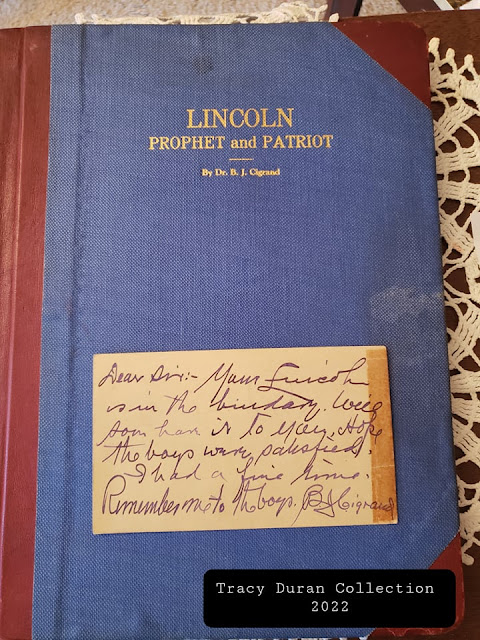 LINCOLN
PROPHET and PATRIOT
By Dr. B. J. Cigrand
Dear Sir:- Your Lincoln
is in the bindary. Will
soon have it to you. Hope
the boys were satisfied.
I had a fine time.
Remember me to the boys. BJCigrand
Tracy Duran Collection
2022